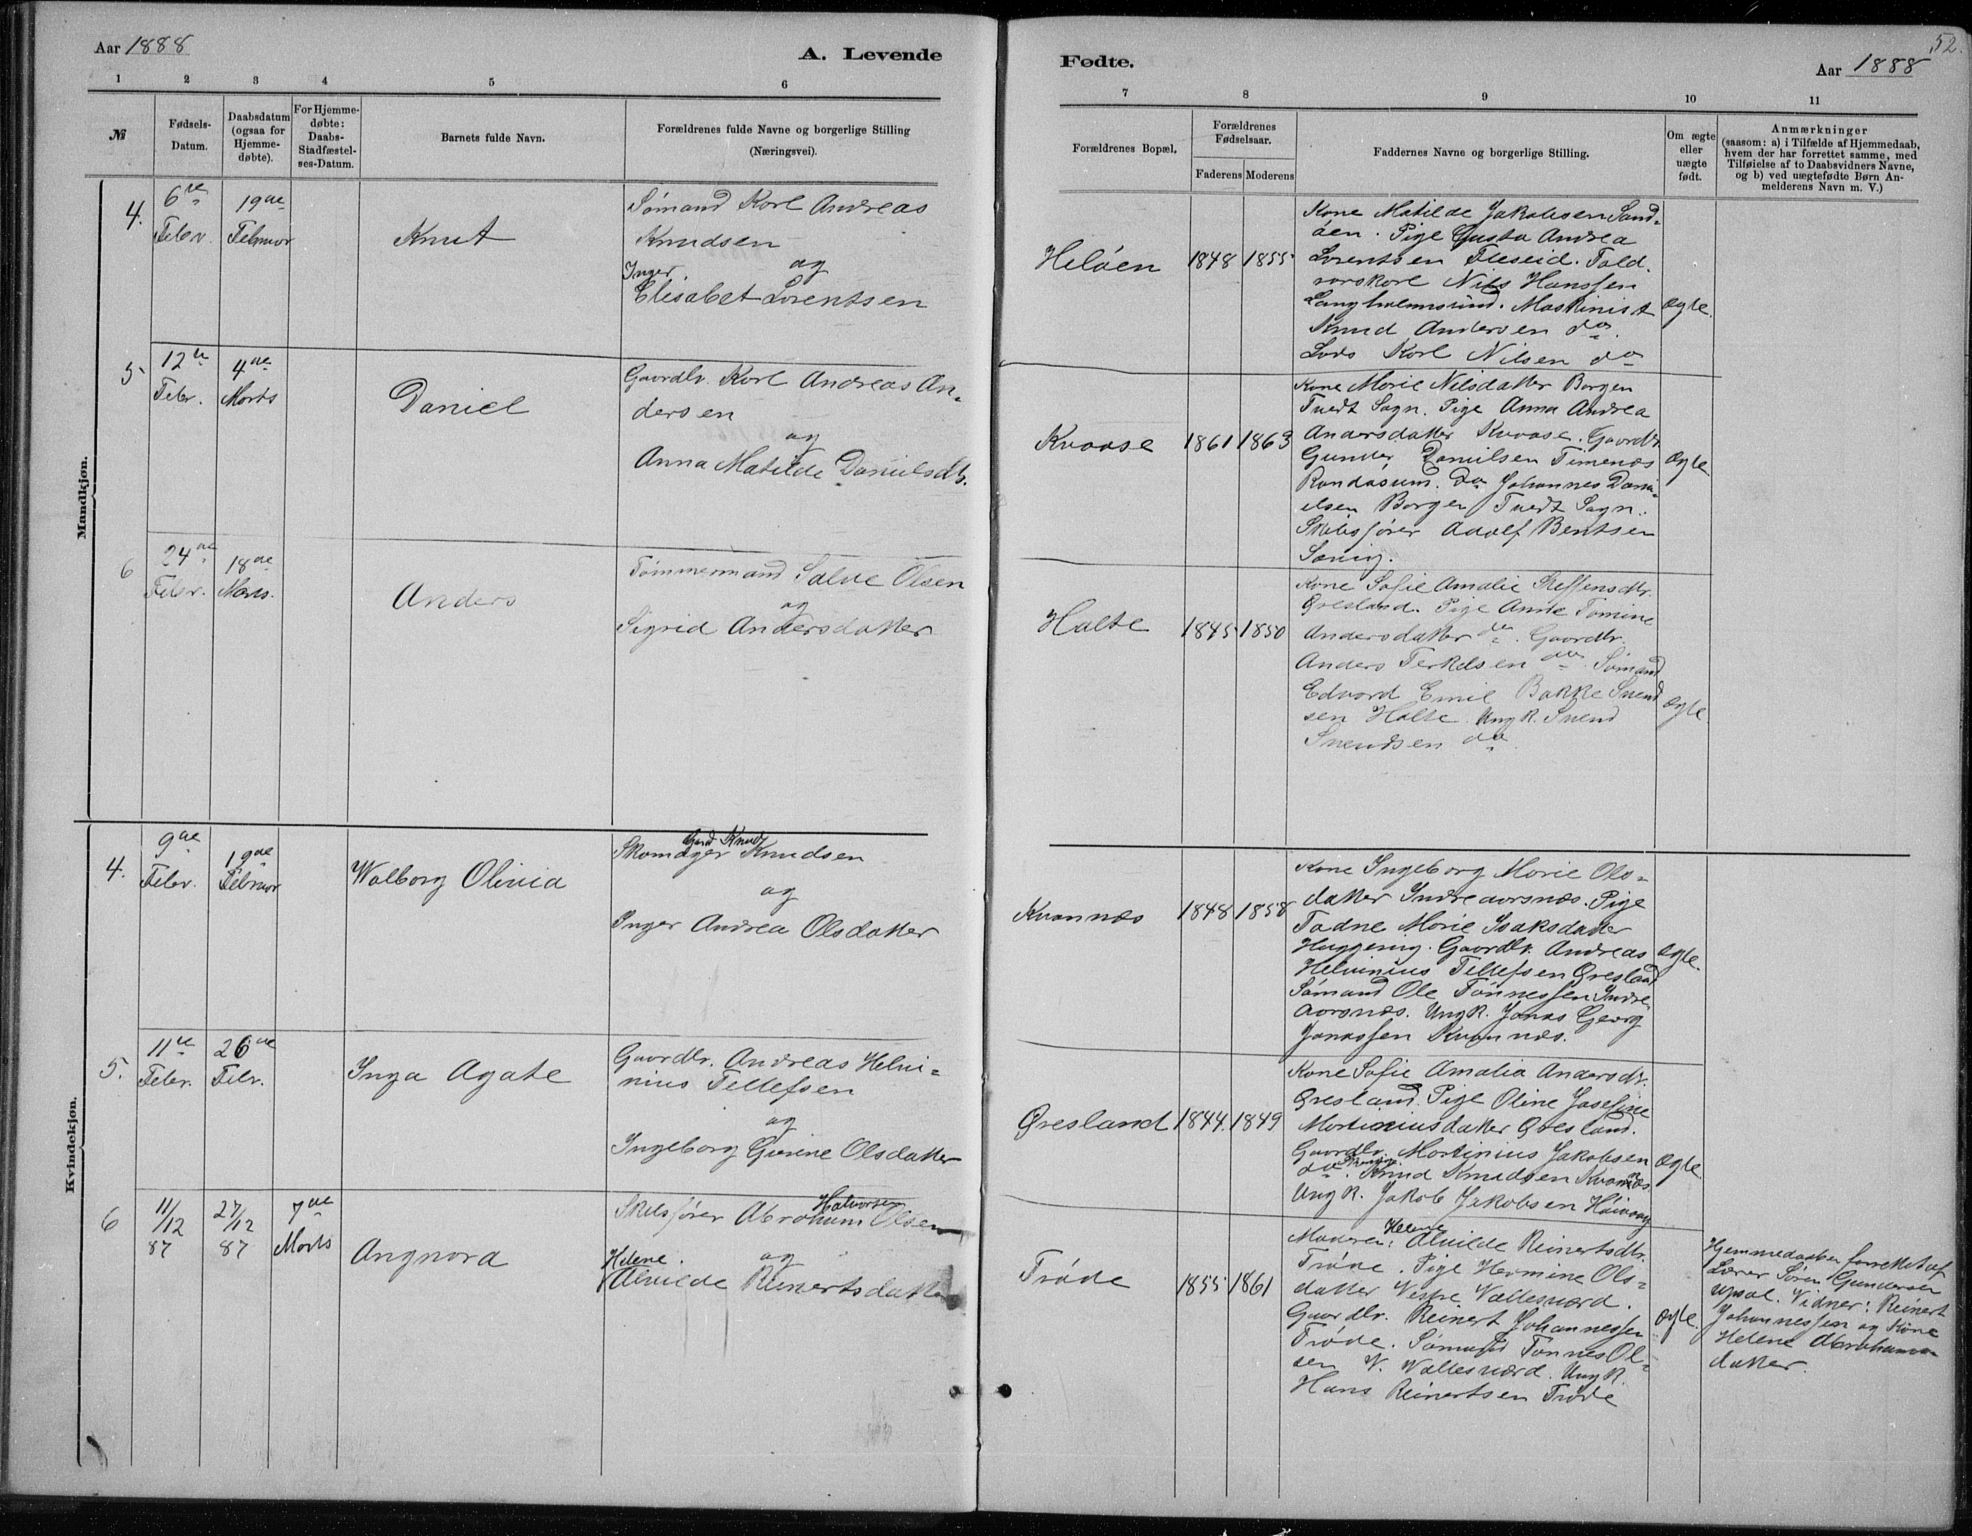 Aar 1888
A. Levende
1 2 3 4 5 6
№
Fødsels-
Datum.
Daabsdatum
(ogsaa for
Hjemme-
døbte).
For Hjemme-
døbte:
Daabs-
Stadfæstel-
ses-Datum.
Barnets fulde Navn.
Forældrenes fulde Navne og borgerlige Stilling
(Næringsvei).
Mandkjøn.
4.
6te
Febr.
19de
Februar
Knut
Sømand Karl Andreas
Knudsen
og
Inger
Elisabet Lorentsen
5
12te
Febr.
4de
Marts
Daniel
Gaardbr. Karl Andreas An-
dersen
og
Anna Matilde Danielsdtr.
6
24de
Febr.
18de
Marts.
Anders
Tømmermand Salve Olsen
og
Sigrid Andersdatter
Kvindekjøn.
4.
9de
Febr.
19de
Februar
Walborg Olivia
Gard Knud
Skomager Knudsen
og
Inger Andrea Olsdatter
5.
11te
Febr.
26de
Febr.
Inga Agate
Gaardbr. Andreas Helvi-
nius Tellefsen
og
Ingeborg Gurine Olsdatter
6
11/12
87
27/12
87
7de
Marts
Angnora
Halvorsen
Skibsfører Abraham Olsen
og
Helene
Alvilde Reinertsdatter
52.
Fødte.
Aar 1888
7 8 9 10 11
Forældrenes Bopæl.
Forældrenes
Fødselsaar.
Faderens Moderens
Faddernes Navne og borgerlige Stilling.
Om ægte
eller
uægte
født.
Anmærkninger
(saasom: a) i Tilfælde af Hjemmedaab,
hvem der har forrettet samme, med
Tilføielse af to Daabsvidners Navne,
og b) ved uægtefødte Børn An-
melderens Navn m. V.)
Heløen
1848 1855
Kone Matilde Jakobsen Sand-
øen. Pige Gusta Andrea
Lorentsen Fleseid. Told-
rorskarl Nils Hanssen
Langholmsund. Maskinist
Knud Andersen do.
Lods Karl Nilsen do
Ægte.
Kvaase
1861 1863
Kone Marie Nilsdatter Borgen
Tvedt Sogn. Pige Anna Andrea
Andersdatter Kvaase. Gaardbr.
Gunder Danielsen Timenæs
Randøsund. do Johannes Dani-
elsen Borgen Tvedt Sogn.
Skibsfører Adolf Bentsen
Ægte
Halte
1845 1850
Kone Sofie Amalie Steffensdtr.
Øresland. Pige Anne Tomine
Andersdatter do. Gaardbr.
Anders Terkelsen do. Sømand
Edvard Emil Bakke Svend
sen Halte. Ungk. Svend
Svendsen do.
Ægte
Kvannæs
1848 1858
Kone Ingeborg Marie Ols-
datter Indreaarsnæs. Pige
Tadne Marie Isaksdatter
Huggenig. Gaardbr. Andreas
Helvinius Tellefsen Øresland
Sømand Ole Tønnessen Indre
Aarsnæs. Ungk. Jonas Georg
Jonassen Kvannæs.
Ægte.
Øresland
1844. 1849
Kone Sofie Amalia Andersdtr.
Øresland. Pige Oline Josefine
Martiniusdatter Øresland.
Gaardbr. Martinius Jakobsen
do. Knud Knudsen Kvannæs.
Ungk. Jakob Jakobsen Høivaag
Ægte
Trøde
1855 1861
Helene
Moderen: Alvilde Reinertsdtr.
Trøde. Pige Hermine Ols-
datter Vestre Vallesværd.
Gaardbr. Reinert Johannessen
Trøde. Sømand Tønnes Ol-
sen V. Vallesværd. Ungk.
Hans Reinertsen Trøde
Ægte.
Hjemmedaaben forrettet af
Lærer Søren Gundersen
Upsal. Vidner: Reinert
Johannessen og Kone
Helene Abrahams-
datter.